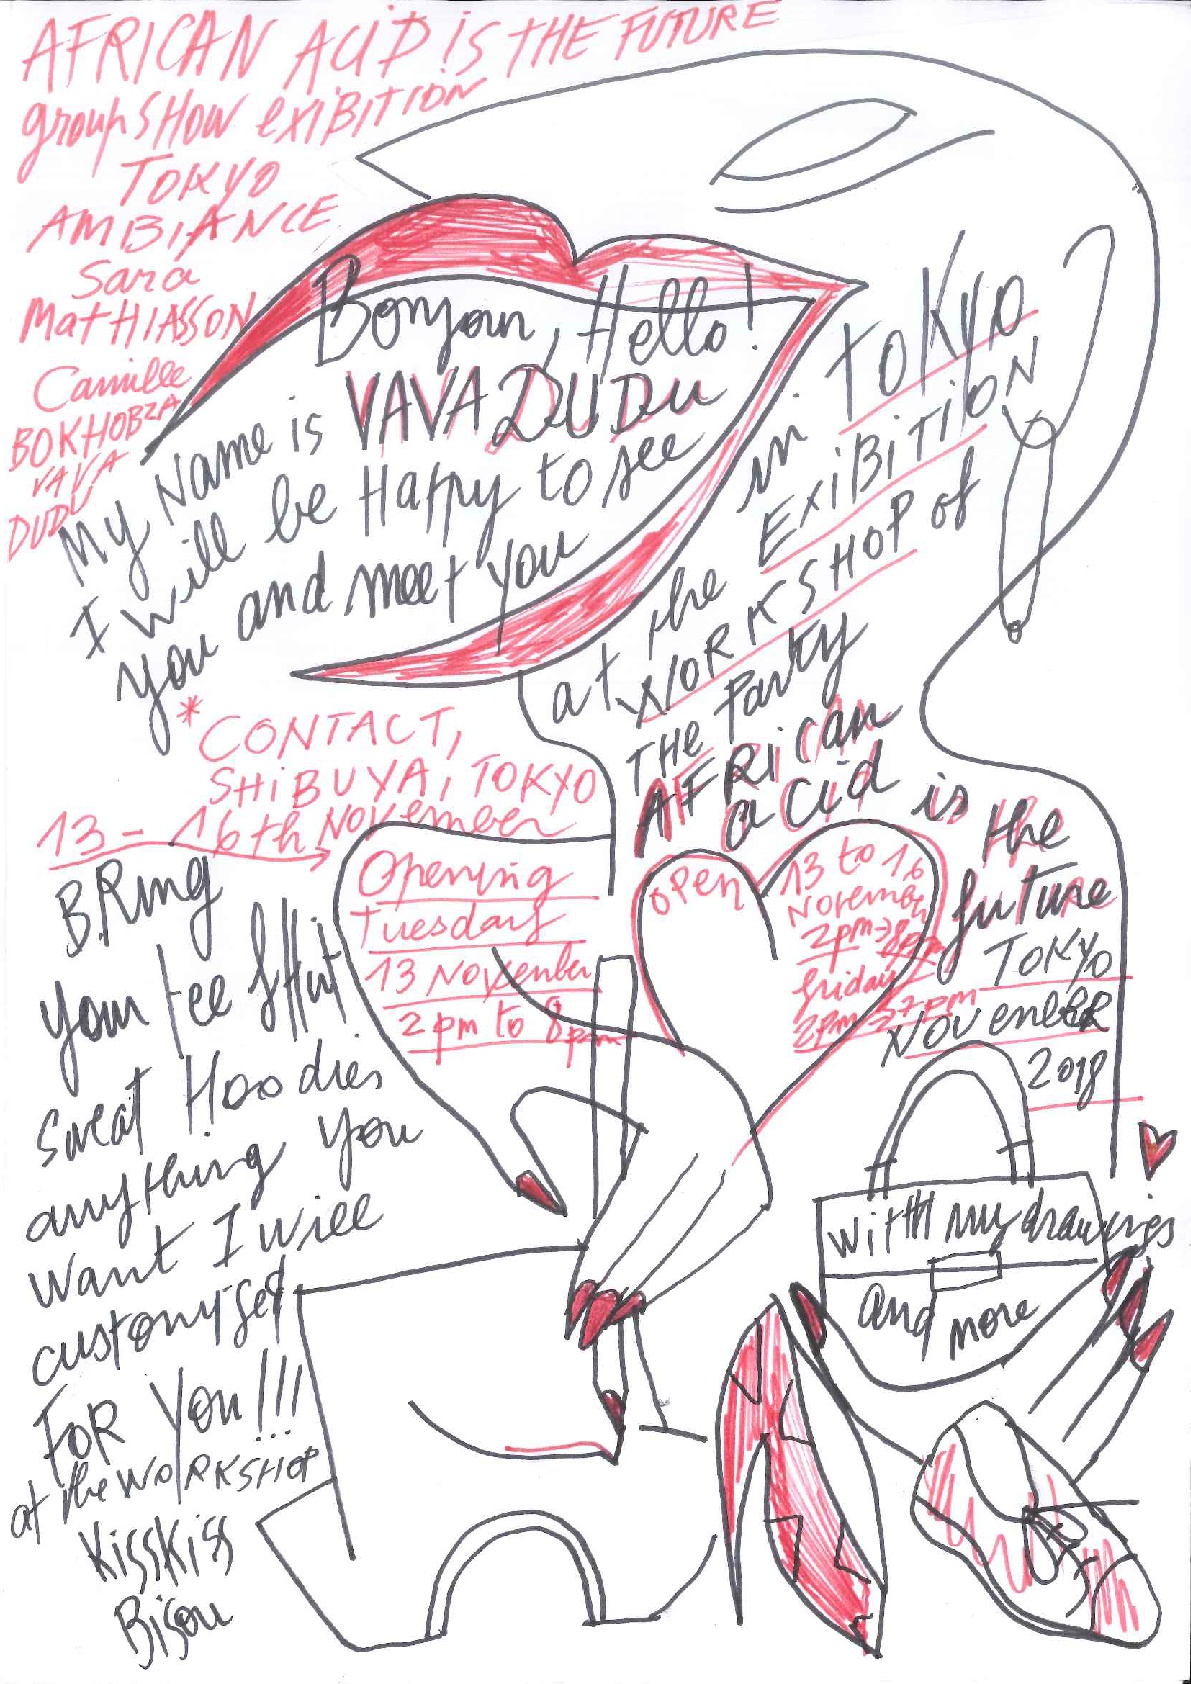 AFRICAN ACID iS THE FUTURE
group SHOW exiBiTION
TOKYO
AMBIANCE
Sara
MatHIASSON
Camille
BOKHOBZA
VAVA
DUDU
Bonjour, Hello!
My Name is VAVA DUDU
I will be Happy to see
you and meet you
at the EXiBiTiON
in TOKYO
WORKSHOP of
THE Party
AFRiCan
aCid is the
future
TOKYO
NOVEmBER
2018
*CONTACT,
SHiBUYA, TOKYO
13 - 16th NOVember
Opening
Tuesday
13 November
2 pm to 8pm
OPen
13 to 16
November
2pm → 8pm
friday
2pm → 7pm
BRing
your tee sHirt
sweat Hoodies
anything you
want I will
customyse it
FOR YOU!!!
at the WORKSHOP
KissKiss
Bisou
witH my drawings
and more